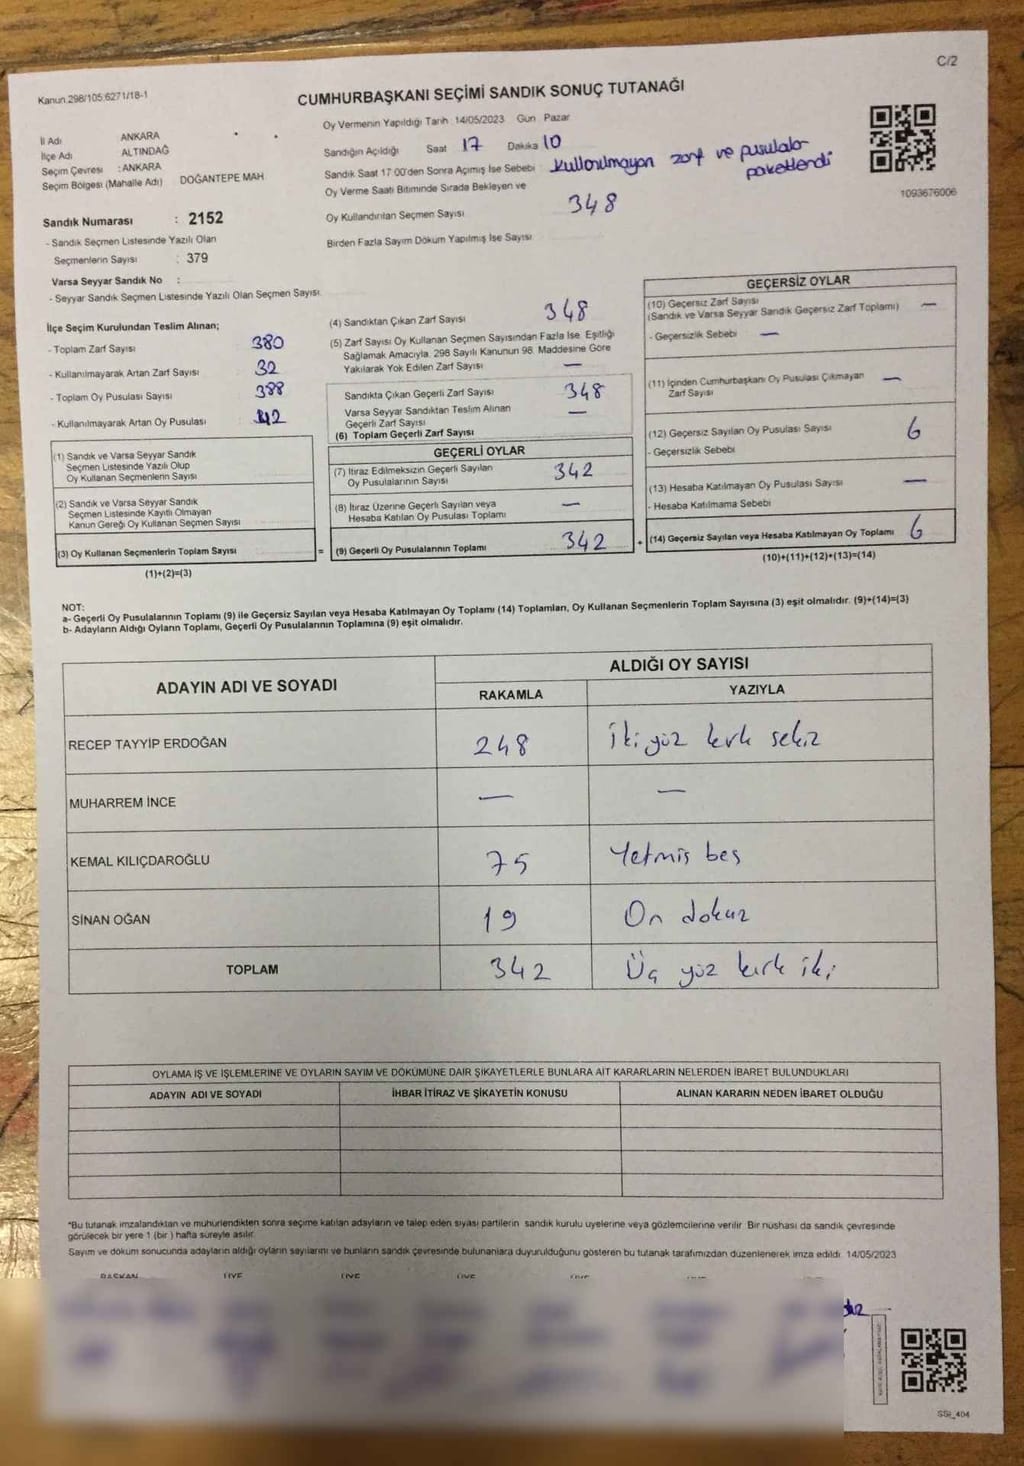 C/2
Kanun.298/105;6271/18-1
CUMHURBAŞKANI SEÇİMİ SANDIK SONUÇ TUTANAĞI
İl Adı ANKARA
İlçe Adı ALTINDAĞ
Seçim Çevresi : ANKARA
Seçim Bölgesi (Mahalle Adı) DOĞANTEPE MAH
Oy Vermenin Yapıldığı Tarih 14/05/2023 Gün Pazar
Sandığın Açıldığı Saat 17 Dakika 10
Sandık Saat 17 00'den Sonra Açımış İse Sebebi kullanılmayan zarf ve pusulalar
paketlendi
Oy Verme Saati Bitiminde Sırada Bekleyen ve
Oy Kullandırılan Seçmen Sayısı 348
Birden Fazla Sayım Döküm Yapılmış İse Sayısı
1093676006
Sandık Numarası : 2152
- Sandık Seçmen Listesinde Yazılı Olan
Seçmenlerin Sayısı : 379
Varsa Seyyar Sandık No :
- Seyyar Sandık Seçmen Listesinde Yazılı Olan Seçmen Sayısı
İlçe Seçim Kurulundan Teslim Alınan;
- Toplam Zarf Sayısı 380
- Kullanılmayarak Artan Zarf Sayısı 32
- Toplam Oy Pusulası Sayısı 388
- Kullanılmayarak Artan Oy Pusulası
(1) Sandık ve Varsa Seyyar Sandık
Seçmen Listesinde Yazılı Olup
Oy Kullanan Seçmenlerin Sayısı
(2) Sandık ve Varsa Seyyar Sandık
Seçmen Listesinde Kayıtlı Olmayan
Kanun Gereği Oy Kullanan Seçmen Sayısı
(3) Oy Kullanan Seçmenlerin Toplam Sayısı =
(1)+(2)=(3)
(4) Sandıktan Çıkan Zarf Sayısı 348
(5) Zarf Sayısı Oy Kullanan Seçmen Sayısından Fazla İse, Eşitliği
Sağlamak Amacıyla, 298 Sayılı Kanunun 98. Maddesine Göre
Yakılarak Yok Edilen Zarf Sayısı —
Sandıkta Çıkan Geçerli Zarf Sayısı 348
Varsa Seyyar Sandıktan Teslim Alınan
Geçerli Zarf Sayısı —
(6) Toplam Geçerli Zarf Sayısı
GEÇERLİ OYLAR
(7) İtiraz Edilmeksizin Geçerli Sayılan
Oy Pusulalarının Sayısı 342
(8) İtiraz Üzerine Geçerli Sayılan veya
Hesaba Katılan Oy Pusulası Toplamı —
(9) Geçerli Oy Pusulalarının Toplamı 342 +
GEÇERSİZ OYLAR
(10) Geçersiz Zarf Sayısı
(Sandık ve Varsa Seyyar Sandık Geçersiz Zarf Toplamı) —
- Geçersizlik Sebebi —
(11) İçinden Cumhurbaşkanı Oy Pusulası Çıkmayan
Zarf Sayısı —
(12) Geçersiz Sayılan Oy Pusulası Sayısı 6
- Geçersizlik Sebebi
(13) Hesaba Katılmayan Oy Pusulası Sayısı —
- Hesaba Katılmama Sebebi
(14) Geçersiz Sayılan veya Hesaba Katılmayan Oy Toplamı 6
(10)+(11)+(12)+(13)=(14)
NOT:
a- Geçerli Oy Pusulalarının Toplamı (9) ile Geçersiz Sayılan veya Hesaba Katılmayan Oy Toplamı (14) Toplamları, Oy Kullanan Seçmenlerin Toplam Sayısına (3) eşit olmalıdır. (9)+(14)=(3)
b- Adayların Aldığı Oyların Toplamı, Geçerli Oy Pusulalarının Toplamına (9) eşit olmalıdır.
ADAYIN ADI VE SOYADI ALDIĞI OY SAYISI
RAKAMLA YAZIYLA
RECEP TAYYİP ERDOĞAN 248 İki yüz kırk sekiz
MUHARREM İNCE — —
KEMAL KILIÇDAROĞLU 75 Yetmiş beş
SİNAN OĞAN 19 On dokuz
TOPLAM 342 Üç yüz kırk iki
OYLAMA İŞ VE İŞLEMLERİNE VE OYLARIN SAYIM VE DÖKÜMÜNE DAİR ŞİKAYETLERLE BUNLARA AİT KARARLARIN NELERDEN İBARET BULUNDUKLARI
ADAYIN ADI VE SOYADI İHBAR İTİRAZ VE ŞİKAYETİN KONUSU ALINAN KARARIN NEDEN İBARET OLDUĞU
*Bu tutanak imzalandıktan ve mühürlendikten sonra seçime katılan adayların ve talep eden siyasi partilerin sandık kurulu üyelerine veya gözlemcilerine verilir. Bir nüshası da sandık çevresinde
görülecek bir yere 1 (bir ) hafta süreyle asılır.
Sayım ve döküm sonucunda adayların aldığı oyların sayılarını ve bunların sandık çevresinde bulunanlara duyurulduğunu gösteren bu tutanak tarafımızdan düzenlenerek imza edildi. 14/05/2023
BAŞKAN ÜYE ÜYE ÜYE ÜYE ÜYE ÜYE
SSİ_404